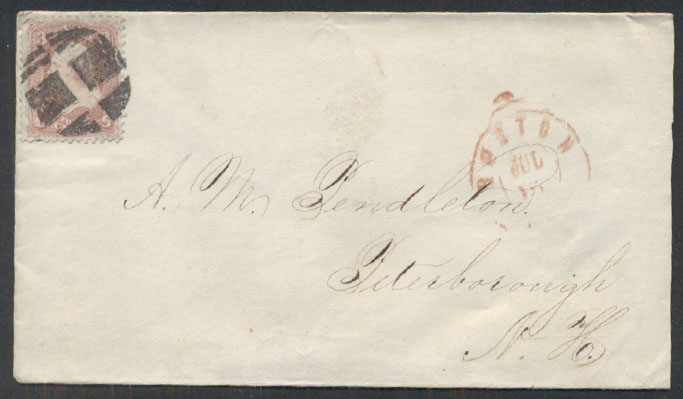 BOSTON
JUL
A. M. Pendleton.
Peterborough
N. H.